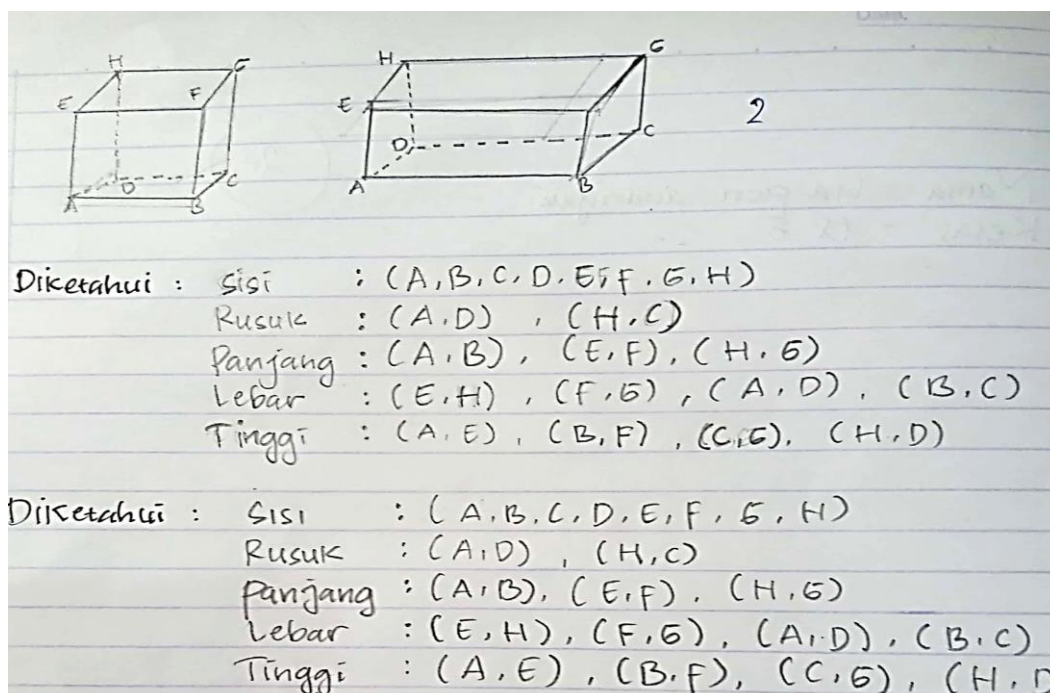 H G H G
E F E
2
D C D C
A B A B
Diketahui : Sisi : (A, B, C, D, E, F, G, H)
Rusuk : (A, D) , (H, C)
Panjang : (A, B), (E, F), (H, G)
Lebar : (E, H) , (F, G) , (A, D) , (B, C)
Tinggi : (A, E) , (B, F) , (C, G), (H, D)
Diketahui : SISI : (A, B, C, D, E, F, G, H)
Rusuk : (A, D) , (H, C)
Panjang : (A, B), (E, F), (H, G)
Lebar : (E, H), (F, G), (A, D), (B, C)
Tinggi : (A, E) , (B, F), (C, G), (H, D